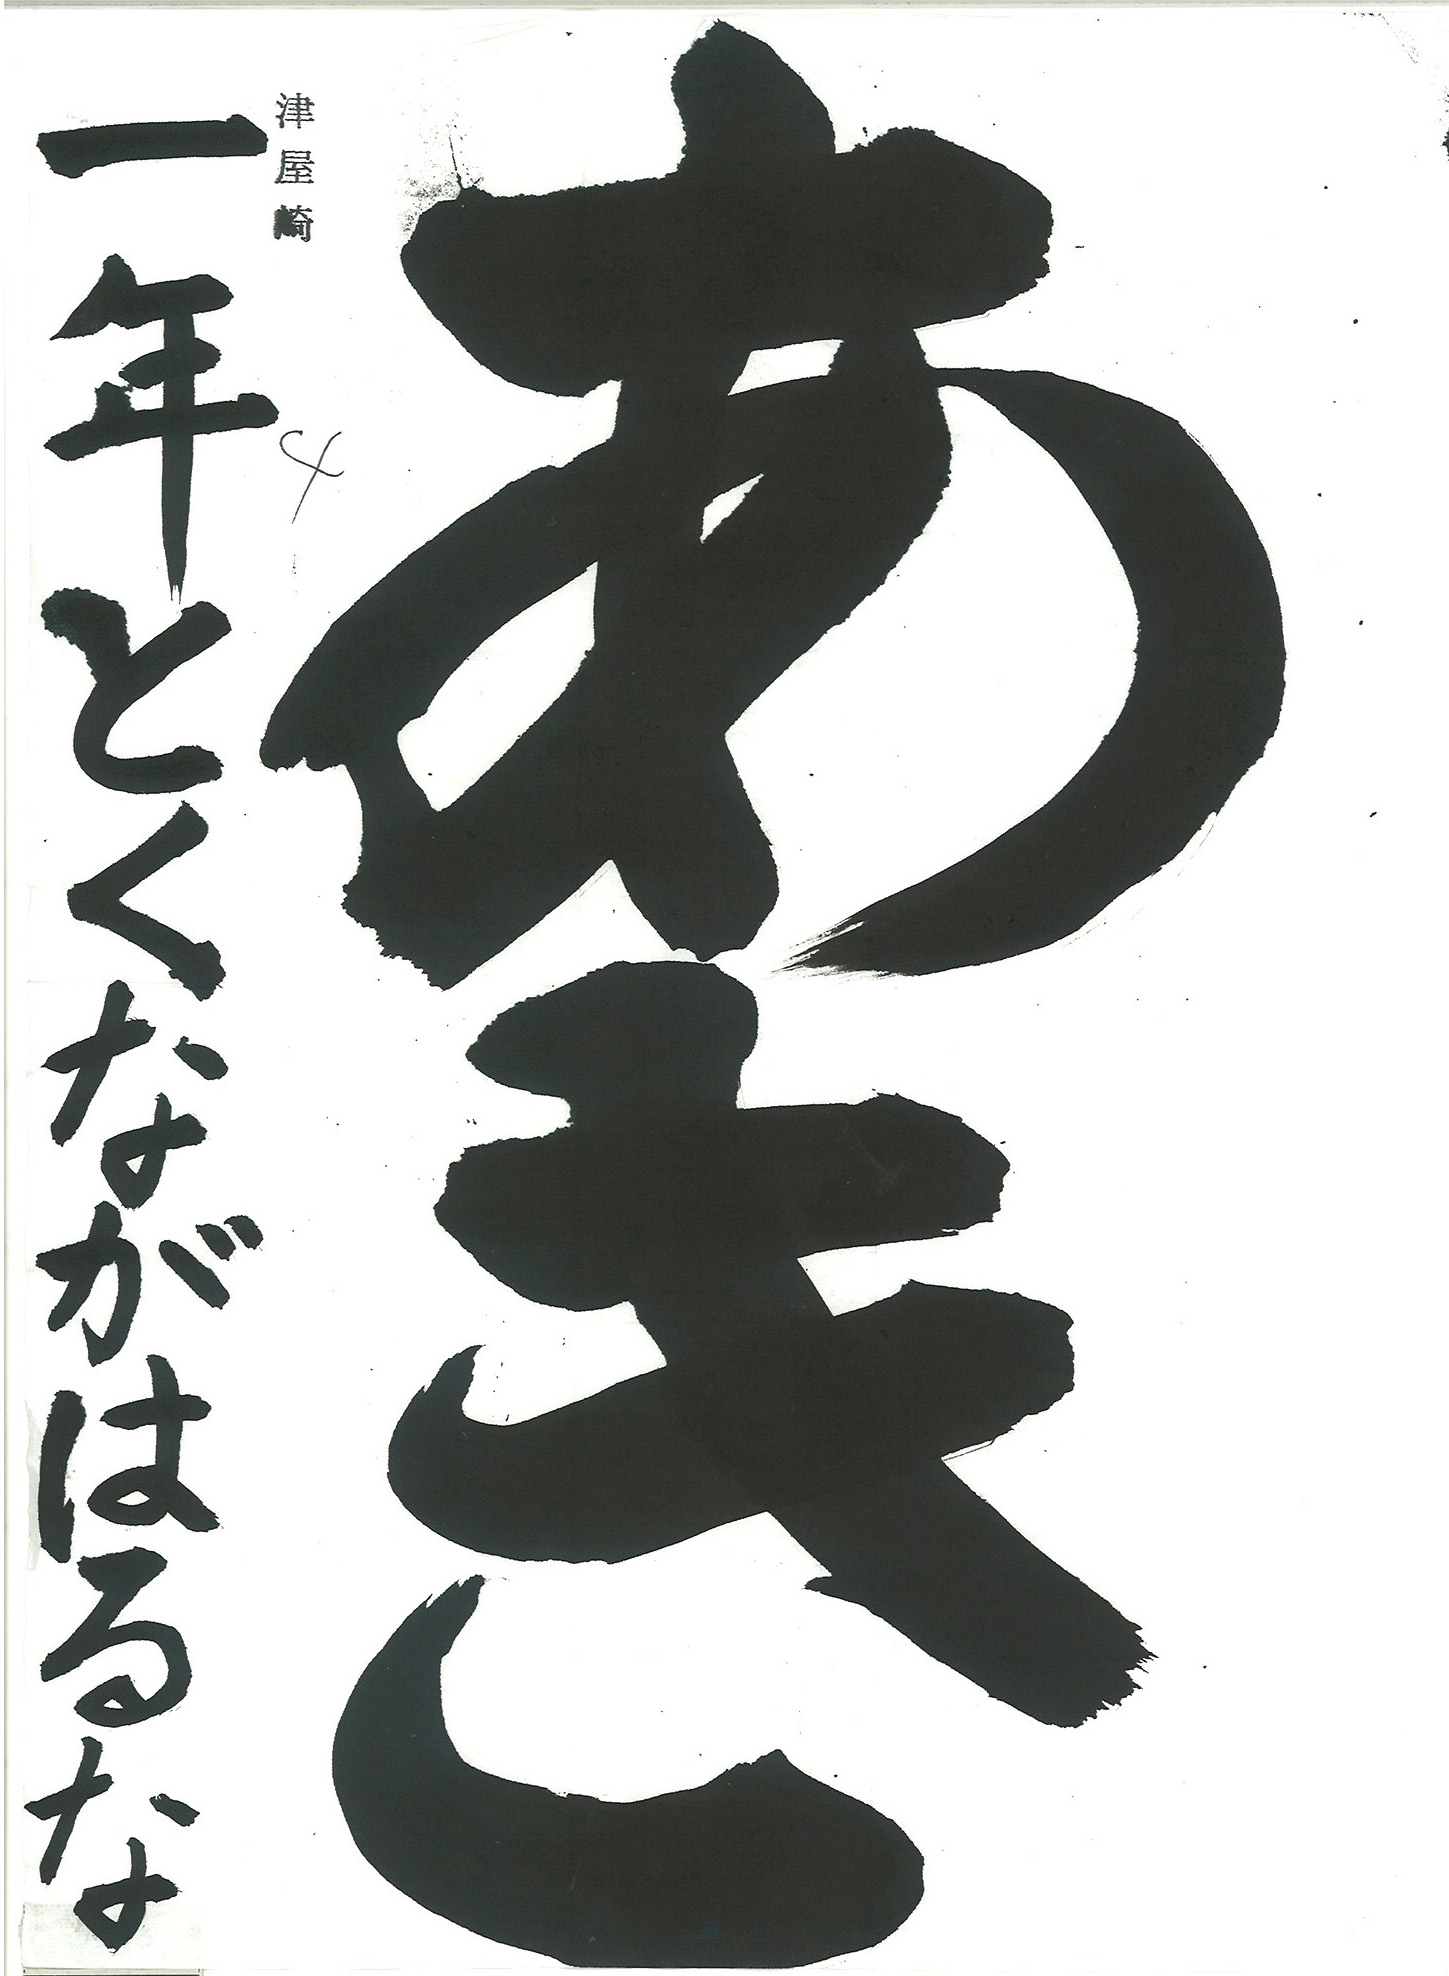 あき
津屋崎
4
一年とくながはるな